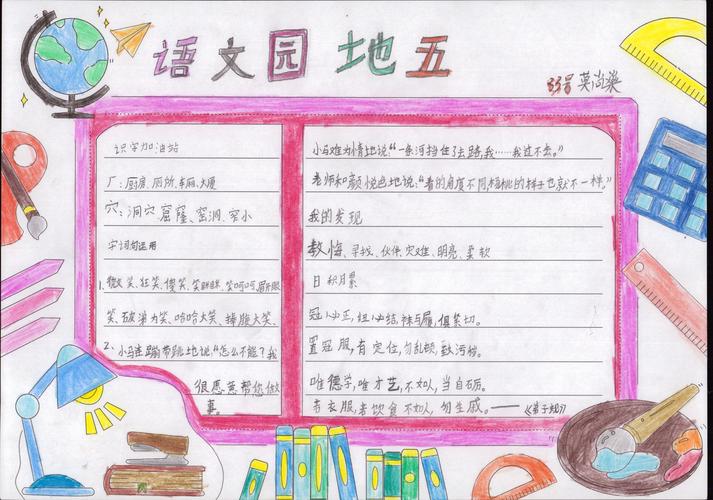 语文园地五
33号 莫尚燊
识字加油站
厂:厨房、厕所、车厢、大厦
穴:洞穴 窟窿、窑洞、窄小
字词句运用
1. 微笑、狂笑、傻笑、笑眯眯、笑呵呵、眉开眼
笑、破涕为笑、哈哈大笑、捧腹大笑、
2、小马连蹦带跳地说“怎么不能？我
很愿意帮您做
事。
小马难为情地说:“一条河挡住了去路,我……我过不去。”
老师和颜悦色地说:“看的角度不同,杨桃的样子也就不一样。”
我的发现
教悔、寻找、伙伴、灾难、明亮、柔软
日积月累
冠必正,纽必结,袜与履,俱紧切。
置冠服,有定位,勿乱顿,致污秽。
唯德学,唯才艺,不如人,当自砺。
若衣服,若饮食 不如人,勿生戚。——《弟子规》